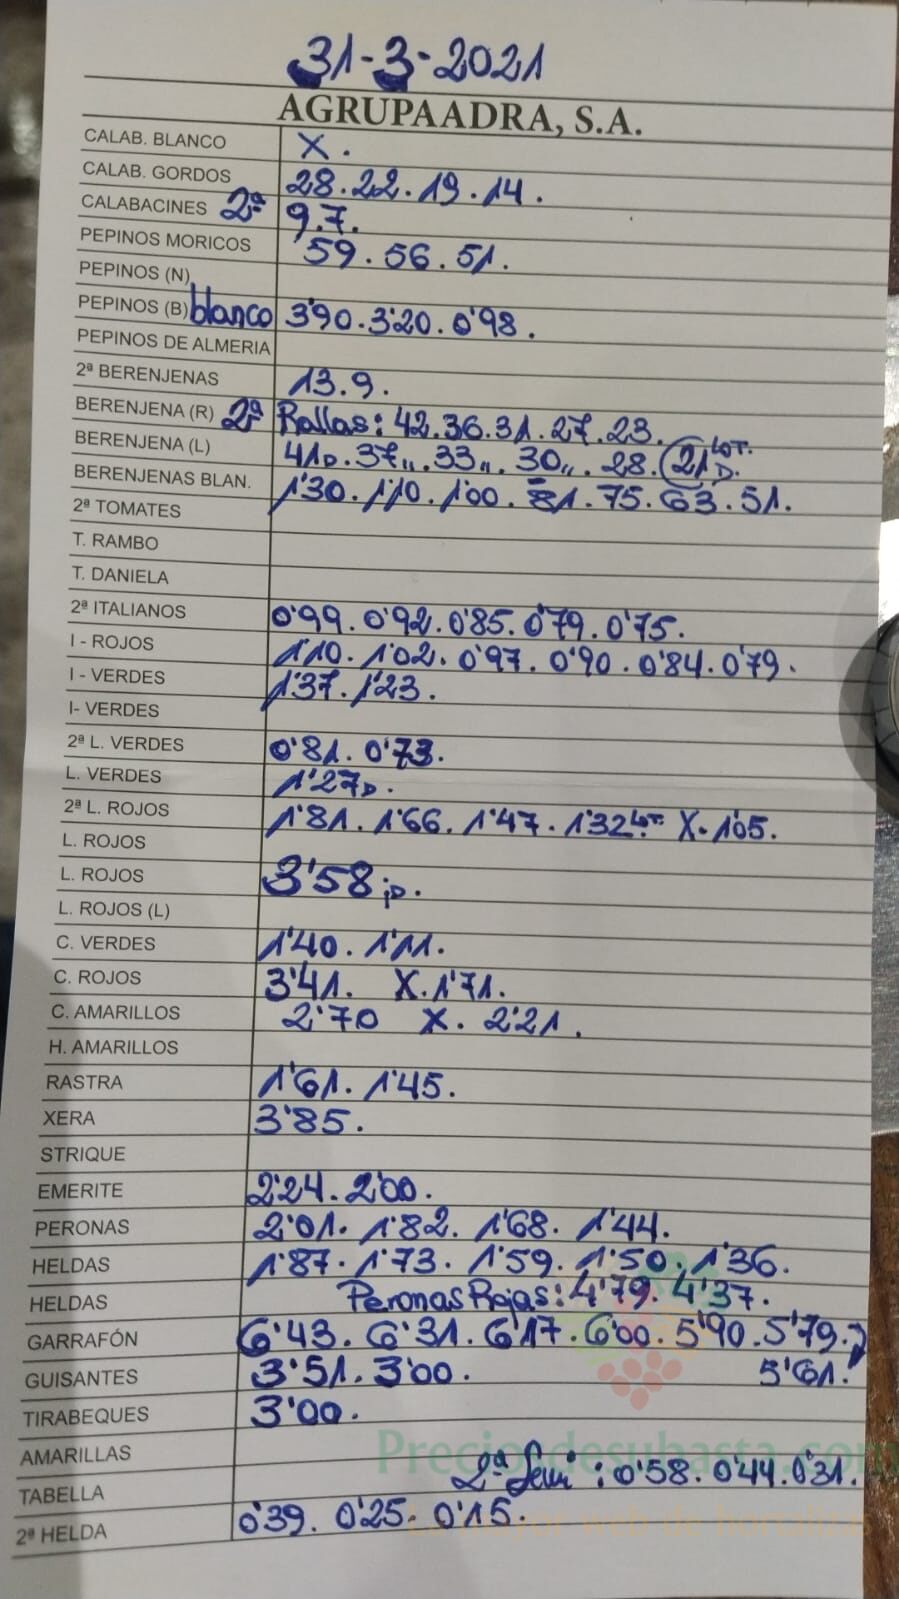 31-3-2021
AGRUPAADRA, S.A.
CALAB. BLANCO X.
CALAB. GORDOS 28.22.19.14.
CALABACINES 2ª 9.7.
PEPINOS MORICOS 59.56.51.
PEPINOS (N)
PEPINOS (B) blanco 3'90.3'20.0'98.
PEPINOS DE ALMERIA
2ª BERENJENAS 13.9.
BERENJENA (R) 2ª Rallas: 42.36.31.27.23.
BERENJENA (L) 41D.37„.33„.30„.28.21D. LOT.
BERENJENAS BLAN. 1'30.1'10.1'00.81.75.63.51.
2ª TOMATES
T. RAMBO
T. DANIELA
2ª ITALIANOS 0'99.0'92.0'85.0'79.0'75.
I - ROJOS 1'10.1'02.0'97.0'90.0'84.0'79.
I - VERDES 1'37.1'23.
I- VERDES
2ª L. VERDES 0'81.0'73.
L. VERDES 1'27D.
2ª L. ROJOS 1'81.1'66.1'47.1'32 X.1'05.
L. ROJOS
L. ROJOS 3'58;D.
L. ROJOS (L)
C. VERDES 1'40.1'11.
C. ROJOS 3'41. X.1'71.
C. AMARILLOS 2'70 X. 2'21.
H. AMARILLOS
RASTRA 1'61.1'45.
XERA 3'85.
STRIQUE
EMERITE 2'24.2'00.
PERONAS 2'01.1'82.1'68.1'44.
HELDAS 1'87.1'73.1'59.1'50.1'36.
HELDAS Peronas Rojas: 4'79.4'37.
GARRAFÓN 6'43.6'31.6'17.6'00.5'90.5'79.
GUISANTES 3'51.3'00. 5'61.
TIRABEQUES 3'00.
AMARILLAS
Preciosdesubasta.com
TABELLA 2ª Semi: 0'58.0'44.0'31.
2ª HELDA 0'39.0'25.0'15.
La mayor web de hortalizas